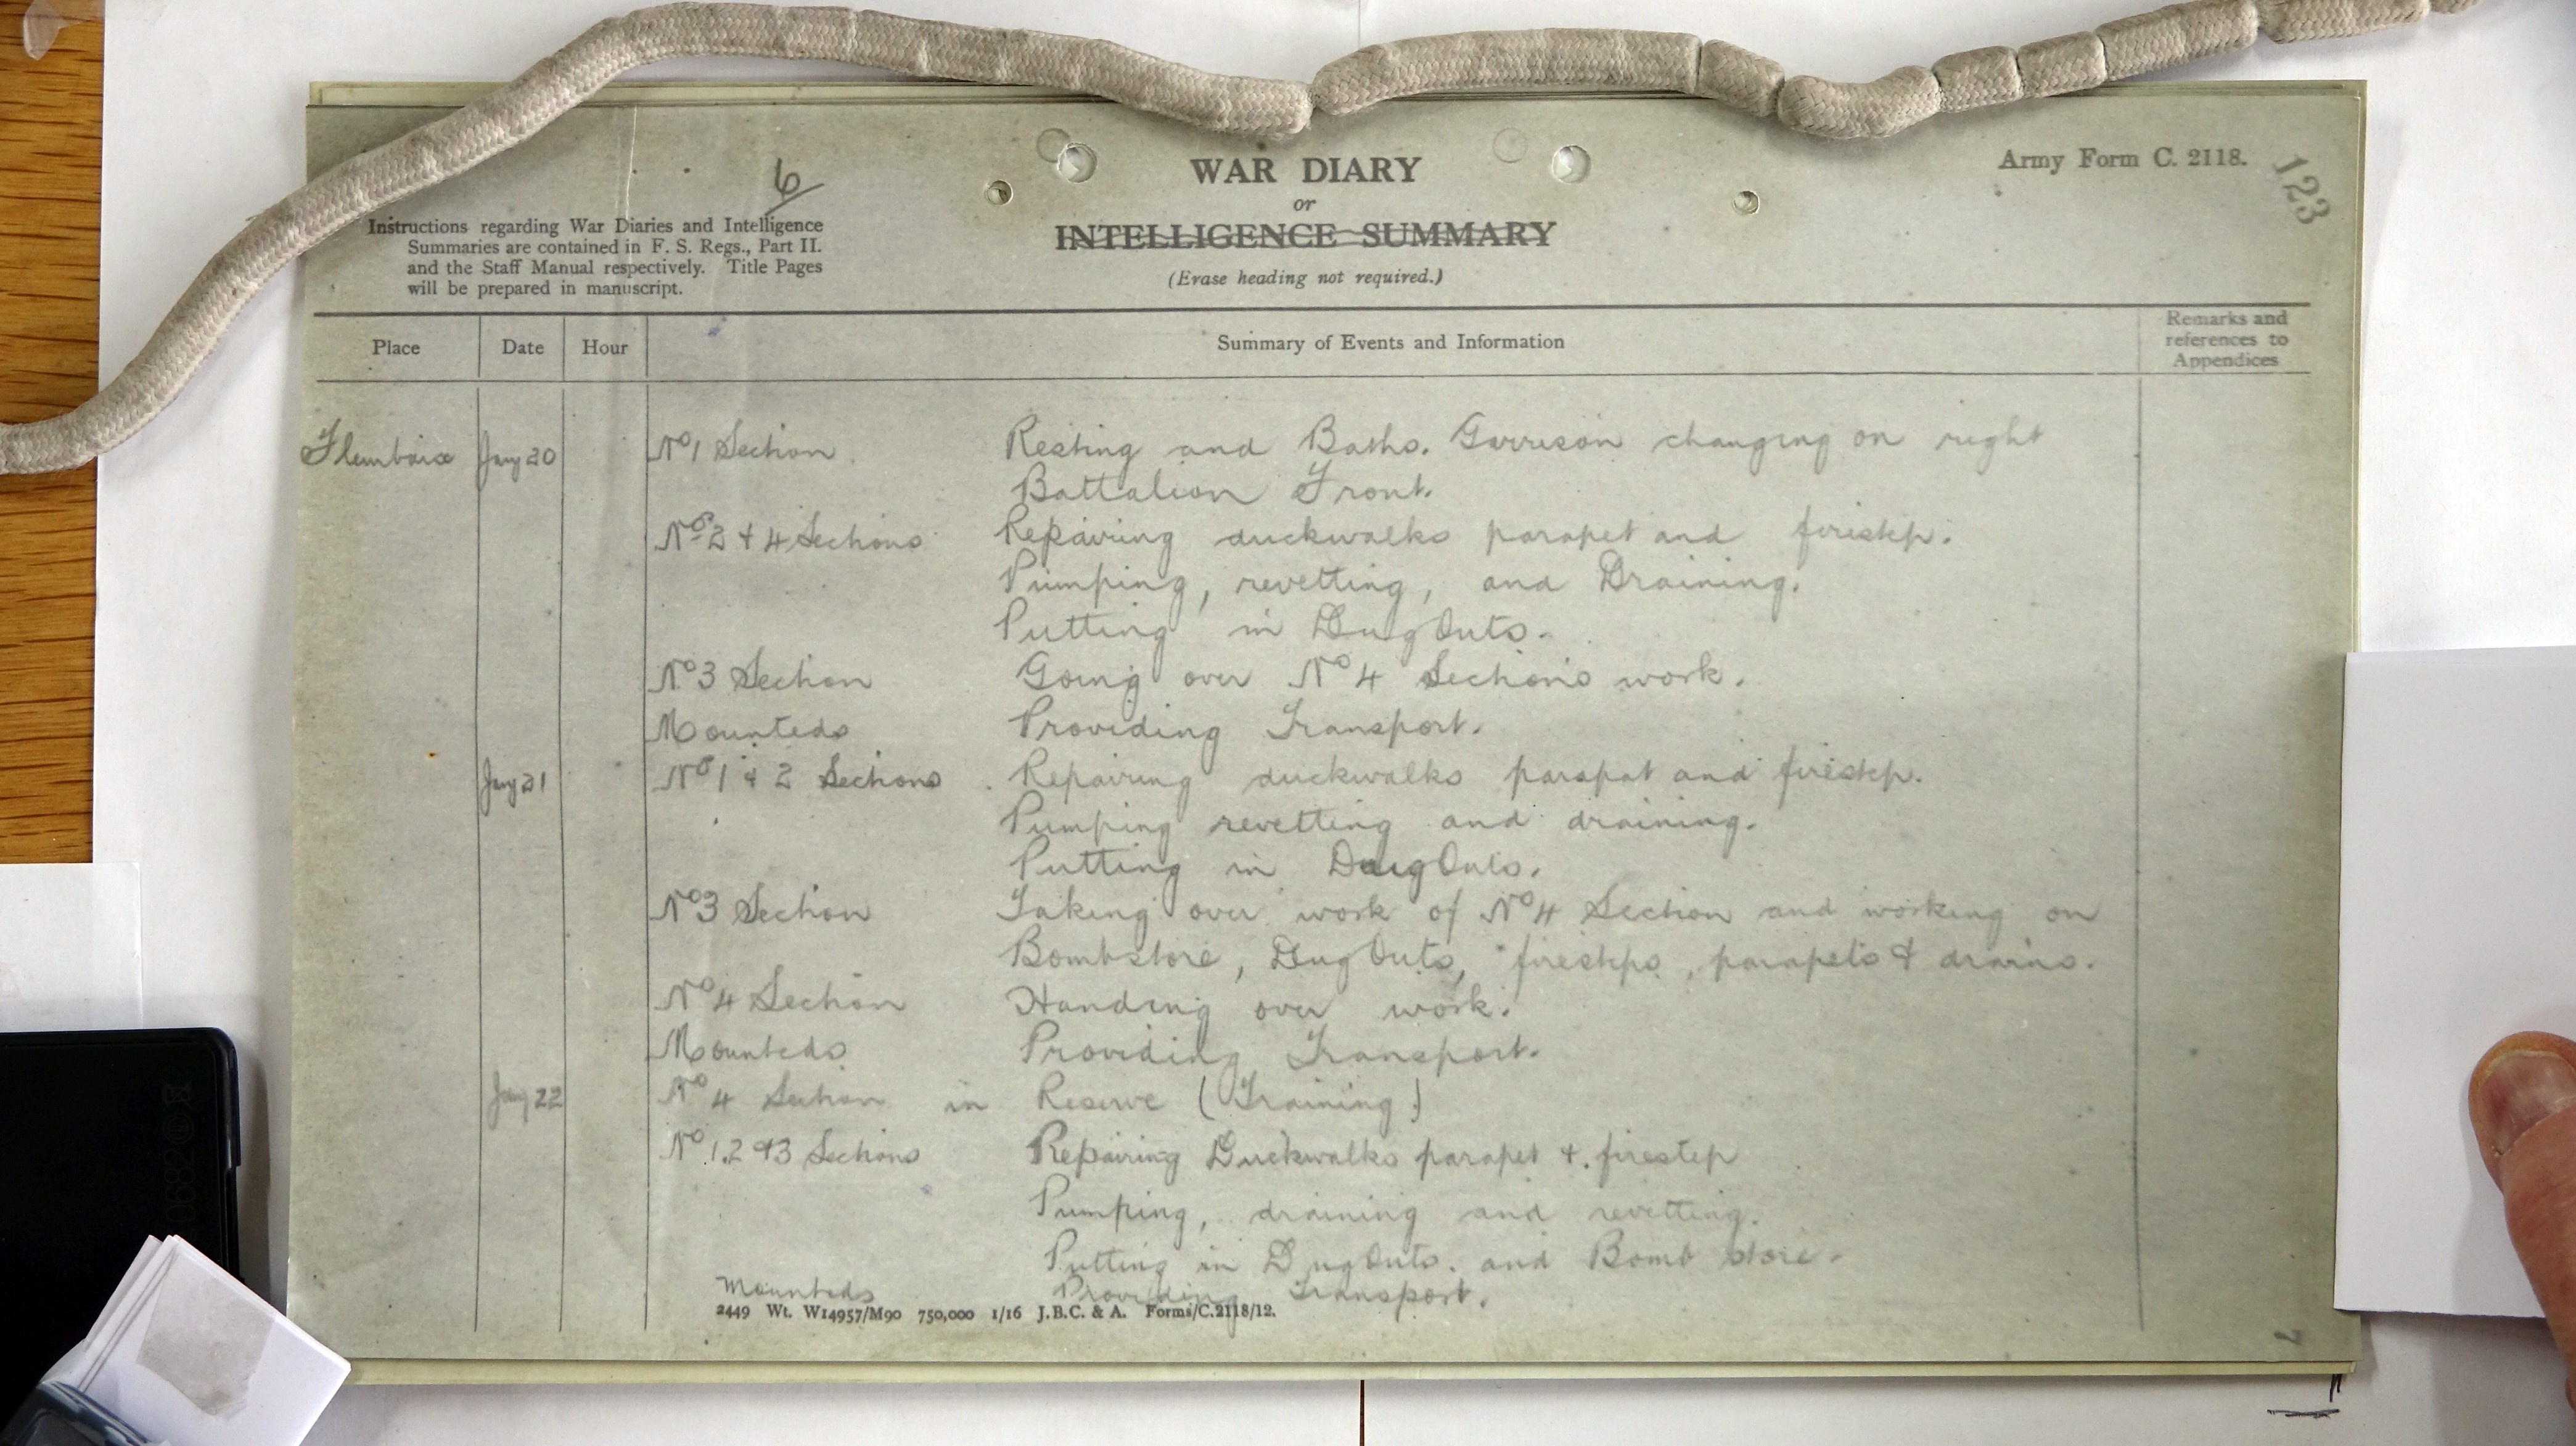 6
WAR DIARY
or
INTELLIGENCE SUMMARY
(Erase heading not required.)
Army Form C. 2118.
123
Instructions regarding War Diaries and Intelligence
Summaries are contained in F. S. Regs., Part II.
and the Staff Manual respectively. Title Pages
will be prepared in manuscript.
Place Date Hour Summary of Events and Information Remarks and references to Appendices
Fleurbaix Jany 20 No 1 Section Resting and Baths. Garrison changing on right
Battalion Front.
Nos 2 & 4 Sections Repairing duckwalks parapet and firestep.
Pumping, revetting, and Draining.
Putting in Dug Outs.
No 3 Section Going over No 4 Section's work.
Mounteds Providing Transport.
Jany 21 Nos 1 & 2 Sections Repairing duckwalks parapat and firestep.
Pumping revetting and draining.
Putting in Dug Outs.
No 3 Section Taking over work of No 4 Section and working on
Bombstore, Dug Outs, firesteps, parapets & drains.
No 4 Section Handing over work.
Mounteds Providing Transport.
Jany 22 No 4 Section in Reserve (Training)
No 1.2 & 3 Sections Repairing Duckwalks parapet & firestep
Pumping, draining and revetting.
Putting in Dug Outs. and Bomb store.
Mounteds Providing Transport.
2449 Wt. W14957/M90 750,000 1/16 J.B.C. & A. Forms/C.2118/12.
7